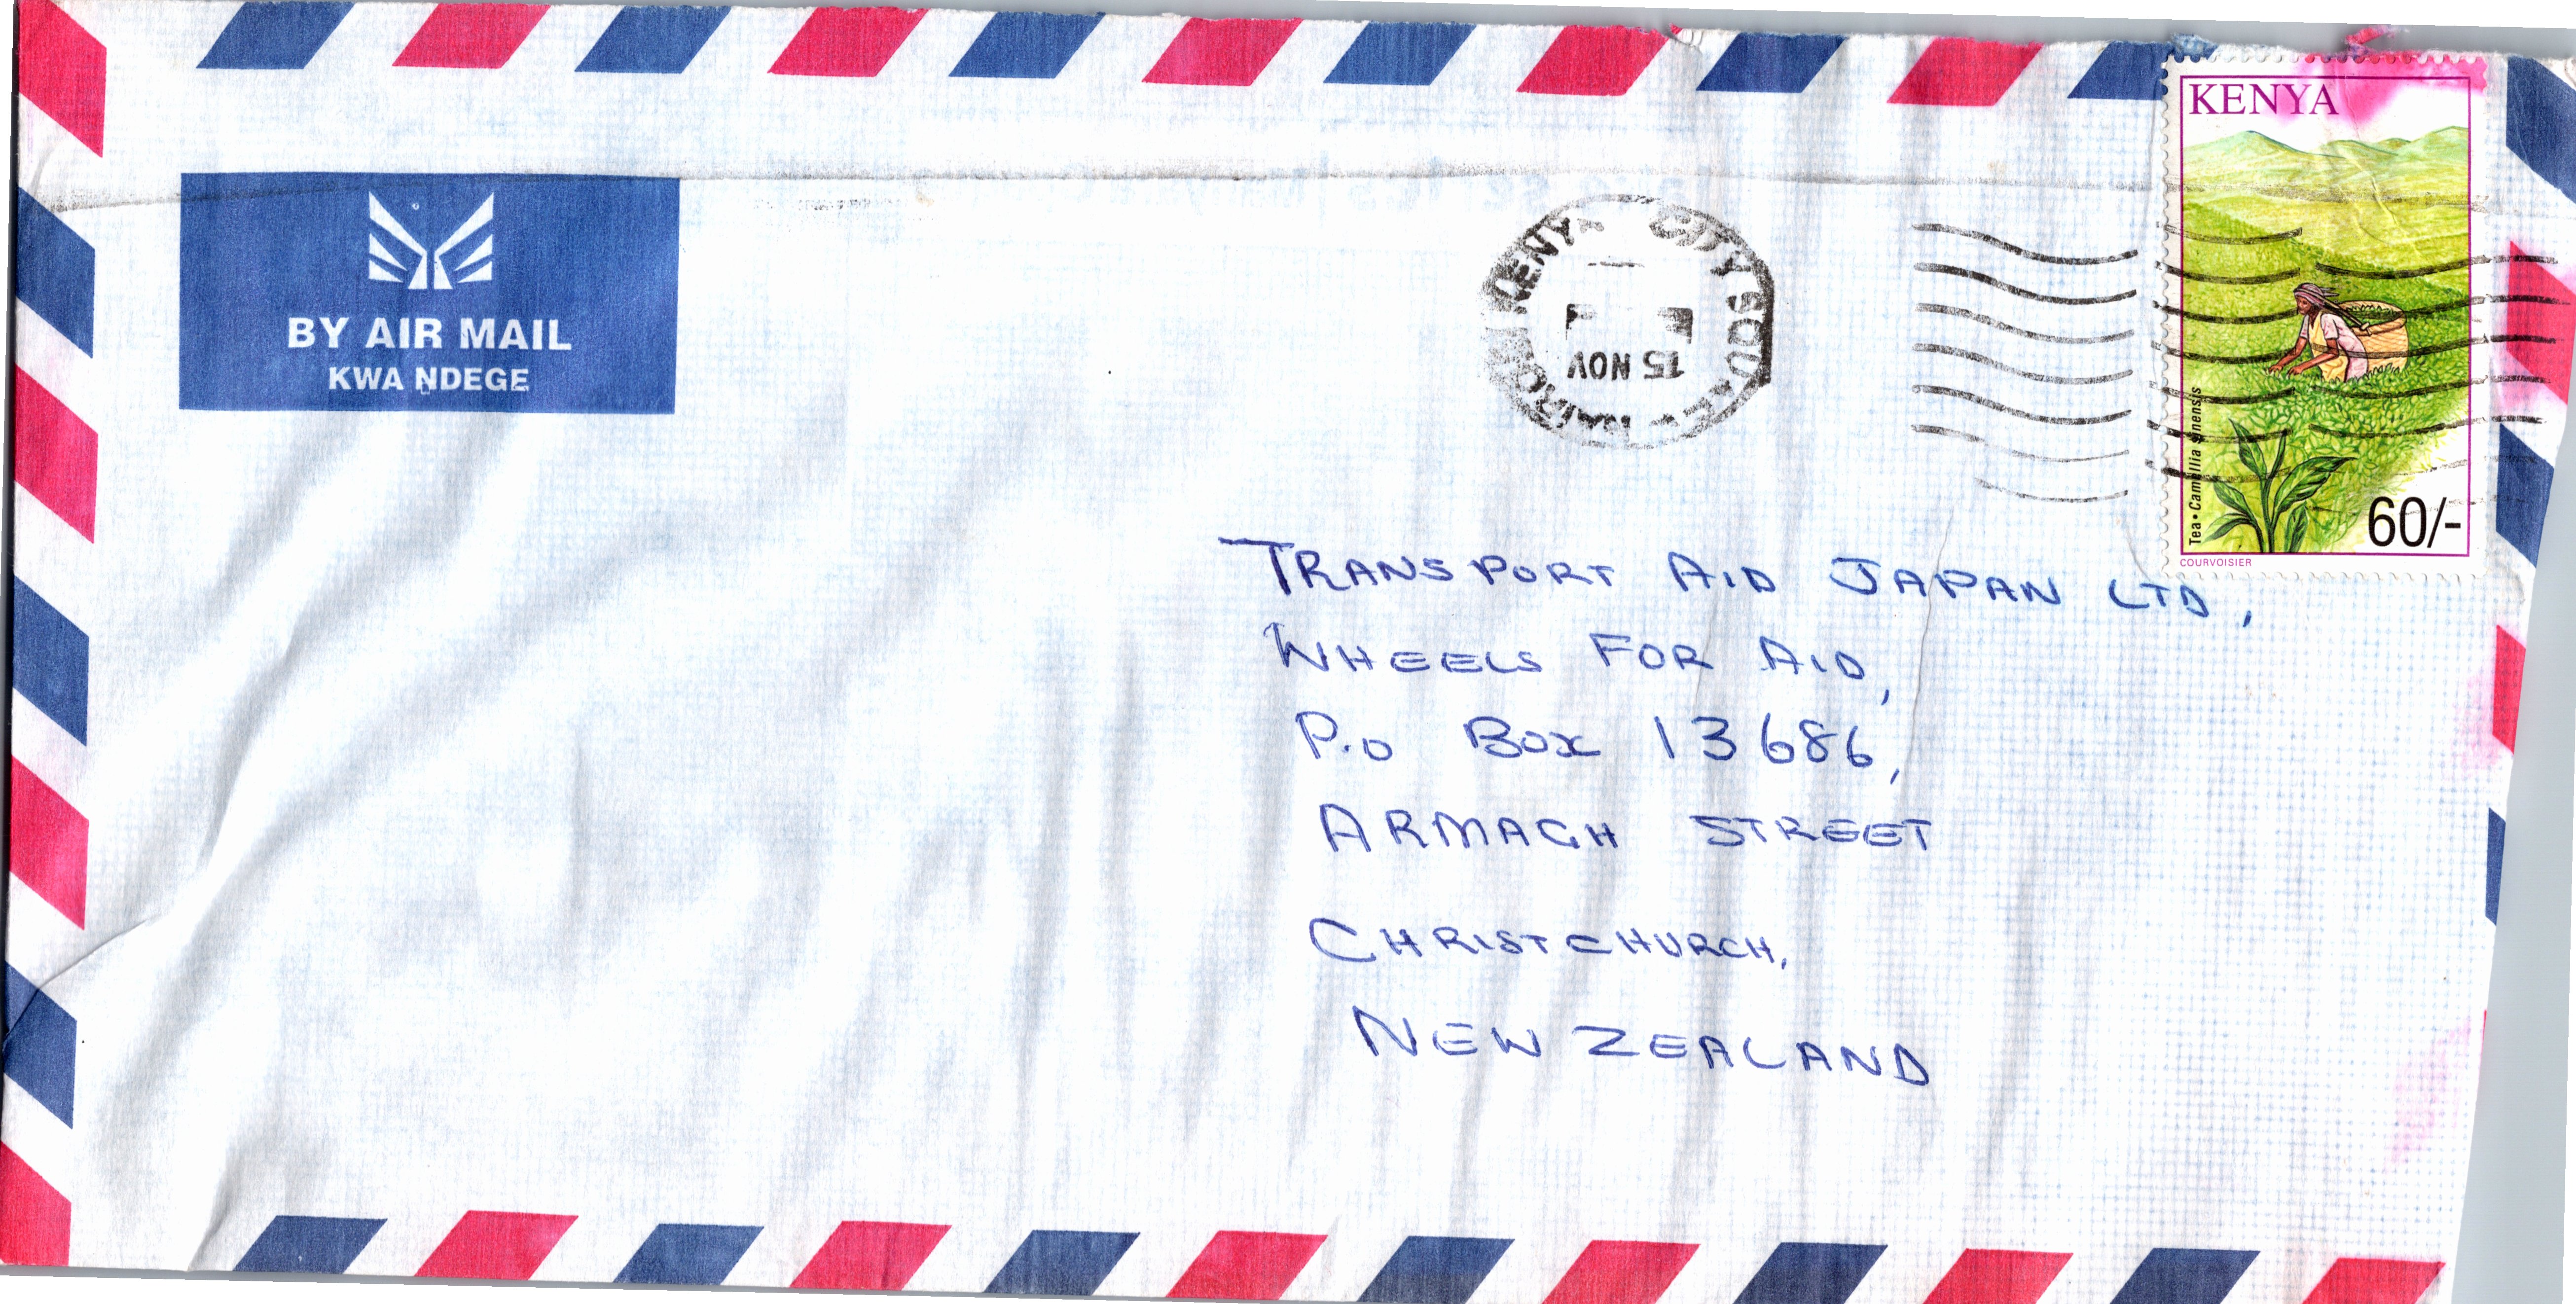 BY AIR MAIL
KWA NDEGE
KENYA CITY SQUARE NAIROBI
15 NOV
KENYA
Tea • Camellia sinensis
60/-
COURVOISIER
TRANSPORT AID JAPAN LTD,
WHEELS FOR AID,
P.O BOX 13686,
ARMAGH STREET
CHRISTCHURCH,
NEW ZEALAND